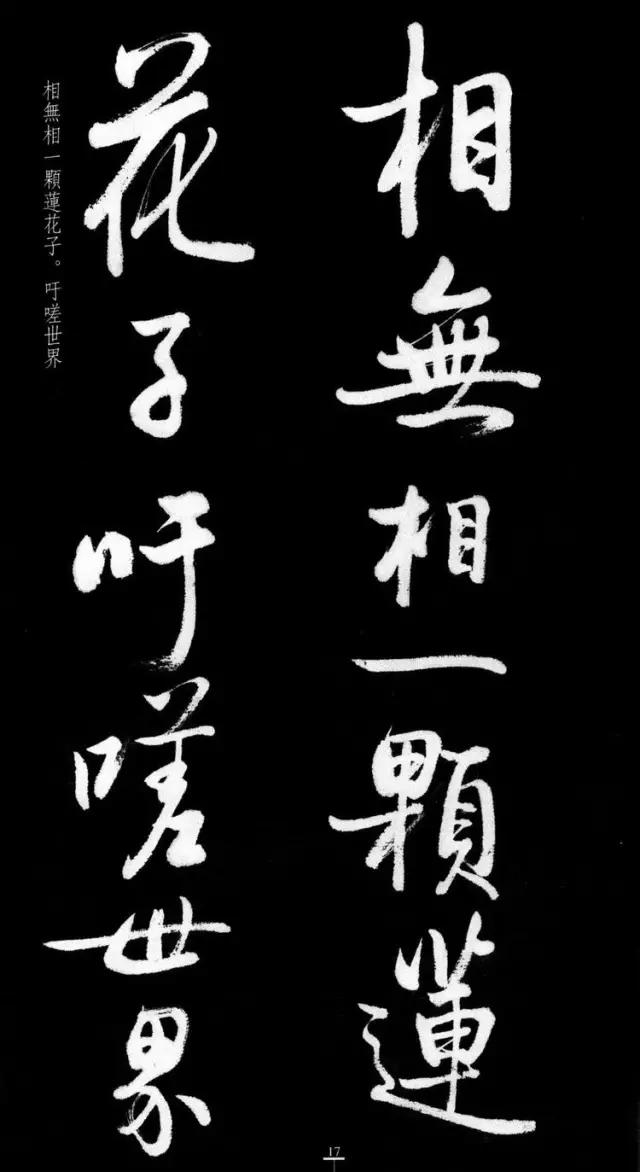 相無相一顆蓮
花子吁嗟世界
相無相一顆蓮花子。吁嗟世界
17